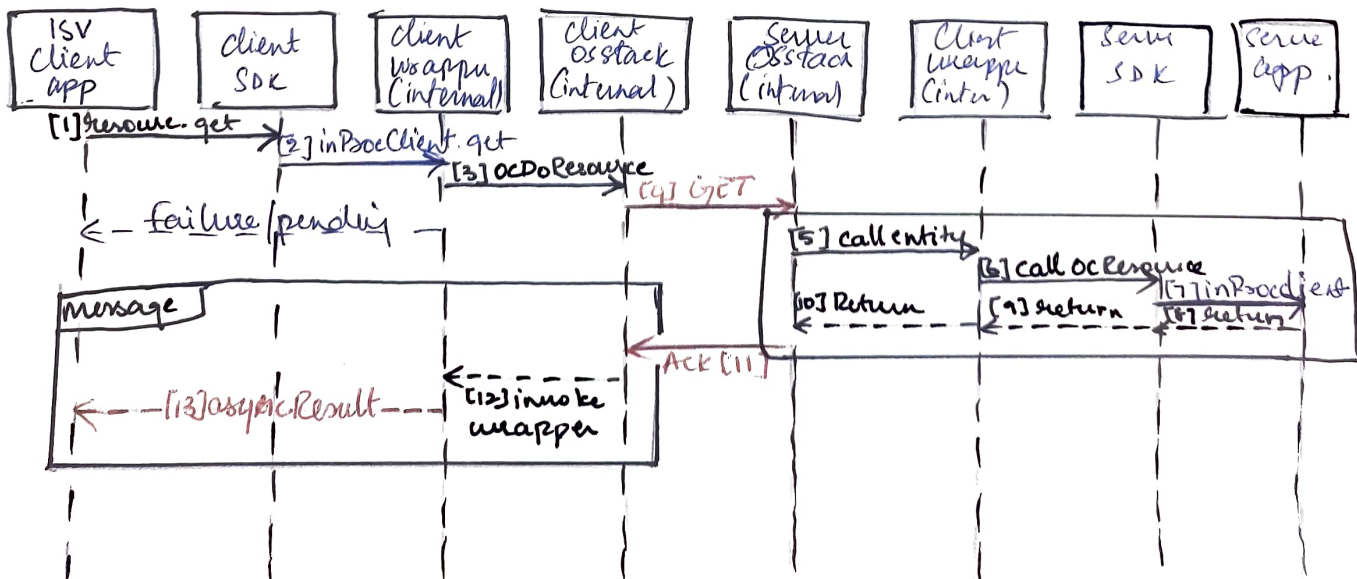 ISV
Client
app
client
SDK
client
wrapper
(internal)
client
OSstack
(internal)
Server
OSstack
(internal)
Client
wrapper
(inter)
Serve
SDK
Serve
app.
[1] resource.get
[2] inProcClient.get
[3] OCDoResource
[4] GET
failure/pending
[5] call entity
[6] call OCResource
[7] inProcclient
[8] return
[9] return
[10] Return
message
ACK [11]
[12] invoke
wrapper
[13] async.Result